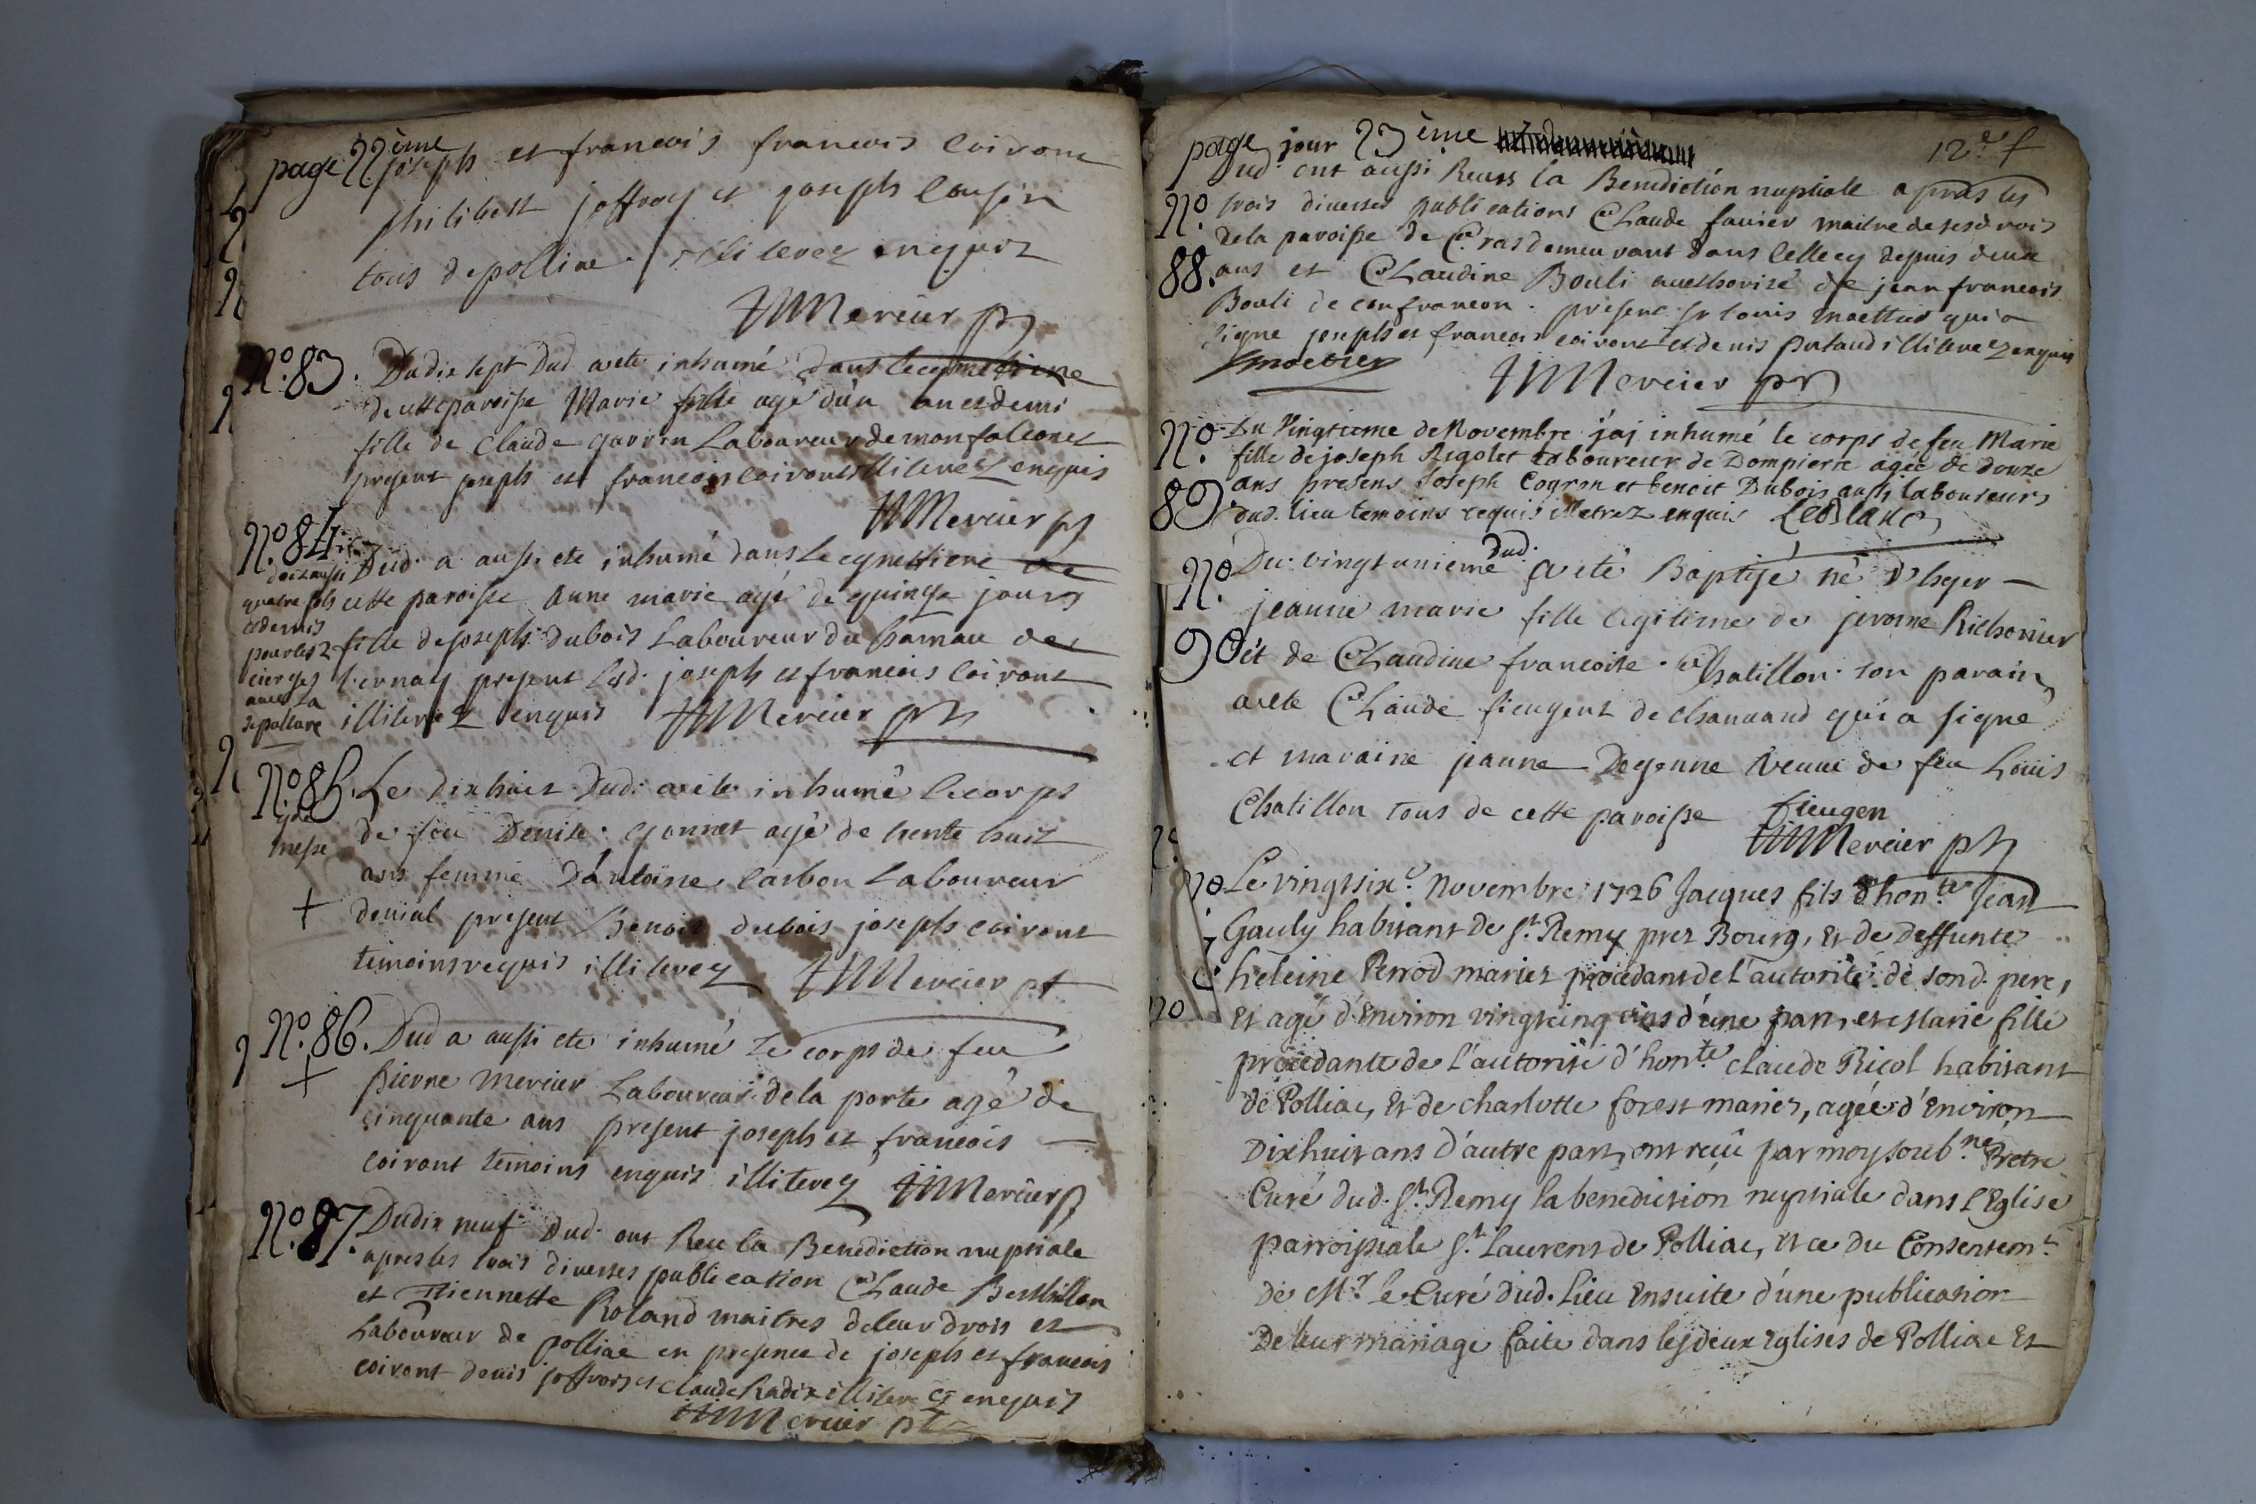 page 22ème
joseph et francois francois Coiront
philibert joffroy et joseph Cousin
tous de polliac. illiterez enquis
Mercier ptr
No. 83. Dudix sept Dud. a ete inhumé dans le cymettiere
de cette paroisse Marie fille agé d'un an et demi
fille de Claude garron Laboureur de monfalconet
present joseph et francois Coiront illiterez enquis
Mercier ptr
No. 84. Dud. a aussi ete inhumé dans le cymettiere de
doit aussi
quatre sols
et demis
pour les 2
cierges
avec la
sepulture
cette paroisse Anne marie agé de quinze jours
fille de joseph Dubois Laboureur du hamau de
bernay present lesd. joseph et francois Coiront
illiterez enquis Mercier ptr
No. 85. Le Dixhuit Dud. a ete inhumé le corps
gde
messe
de feu Denise gonnet agé de trente huit
ans femme d'antoine Carbon Laboureur
denial present benoit dubois joseph Coiront
temoins requis illiterez Mercier pt
No. 86. Dud a aussi ete inhumé le corps de feu
pierre mercier Laboureur de la porte agé de
cinquante ans present joseph et francois
Coiront temoins enquis illiterez Mercier p
No. 87. Dudix neuf Dud. ont Reu la Benediction nuptiale
apres les trois diverses publication Claude Berthillon
et Etiennette Roland maitres de leur drois et
Laboureur de polliac en presence de joseph et francois
Coiront denis joffroy et claude hadix illiterez enquis
Mercier pt
page jour 23ème
12e f
Dud. ont aussi Receus la Benediction nuptiale apras les
No. 88.
trois diverses publications Claude favier maitre de ses drois
de la paroisse de Cras demeurant dans Celle cy depuis deux
ans et Claudine Bouli aucthorisé de jean francois
Bouli de confrancon. present Sr louis moettier qui a
signe joseph et francois coiront et denis putaud illiterez enquis
moettier Mercier ptr
No. 89.
Le Vingtieme de Novembre j'aj inhumé le corps de feu Marie
fille de joseph Rigolet laboureur de Dompierre agée de douze
ans presens Joseph Coyron et benoit Dubois aussi laboureurs
dud. lieu temoins requis illetrez enquis LeBlanc
No. 90
Du vingtunieme dud. a eté Baptisé né d'hyer
jeanne marie fille legitime de jerome Richonier
et de Claudine francoise Chatillon. son parain
a ete Claude fieugent de chanaud qui a signe
et maraine jeanne Doyenne veuve de feu Louis
Chatillon tous de cette paroisse fieugen
Mercier ptr
Le vingtsixe. novembre 1726 Jacques fils d'honte. Jean
Gauly habitant de St. Remy prez Bourg, Et de Deffunte
heleine Perrod mariez procedant de l'autorité de sond. pere,
Et agé d'Environ vingtcinq ans d'une part, et Marie fille
procedante de l'autorité d'honte. claude Ricol habitant
de Polliac, Et de charlotte forest mariez, agée d'Environ
Dixhuit ans d'autre part, ont reçû par moy soubne. Pretre
Curé dud. St. Remy la benediction nuptiale dans l'Eglise
parroissiale St. Laurent de Polliac, et ce du Consentemt.
de Mr. le Curé dud. lieu Ensuite d'une publication
De leur mariage faite dans les deux Eglises de Polliac Et